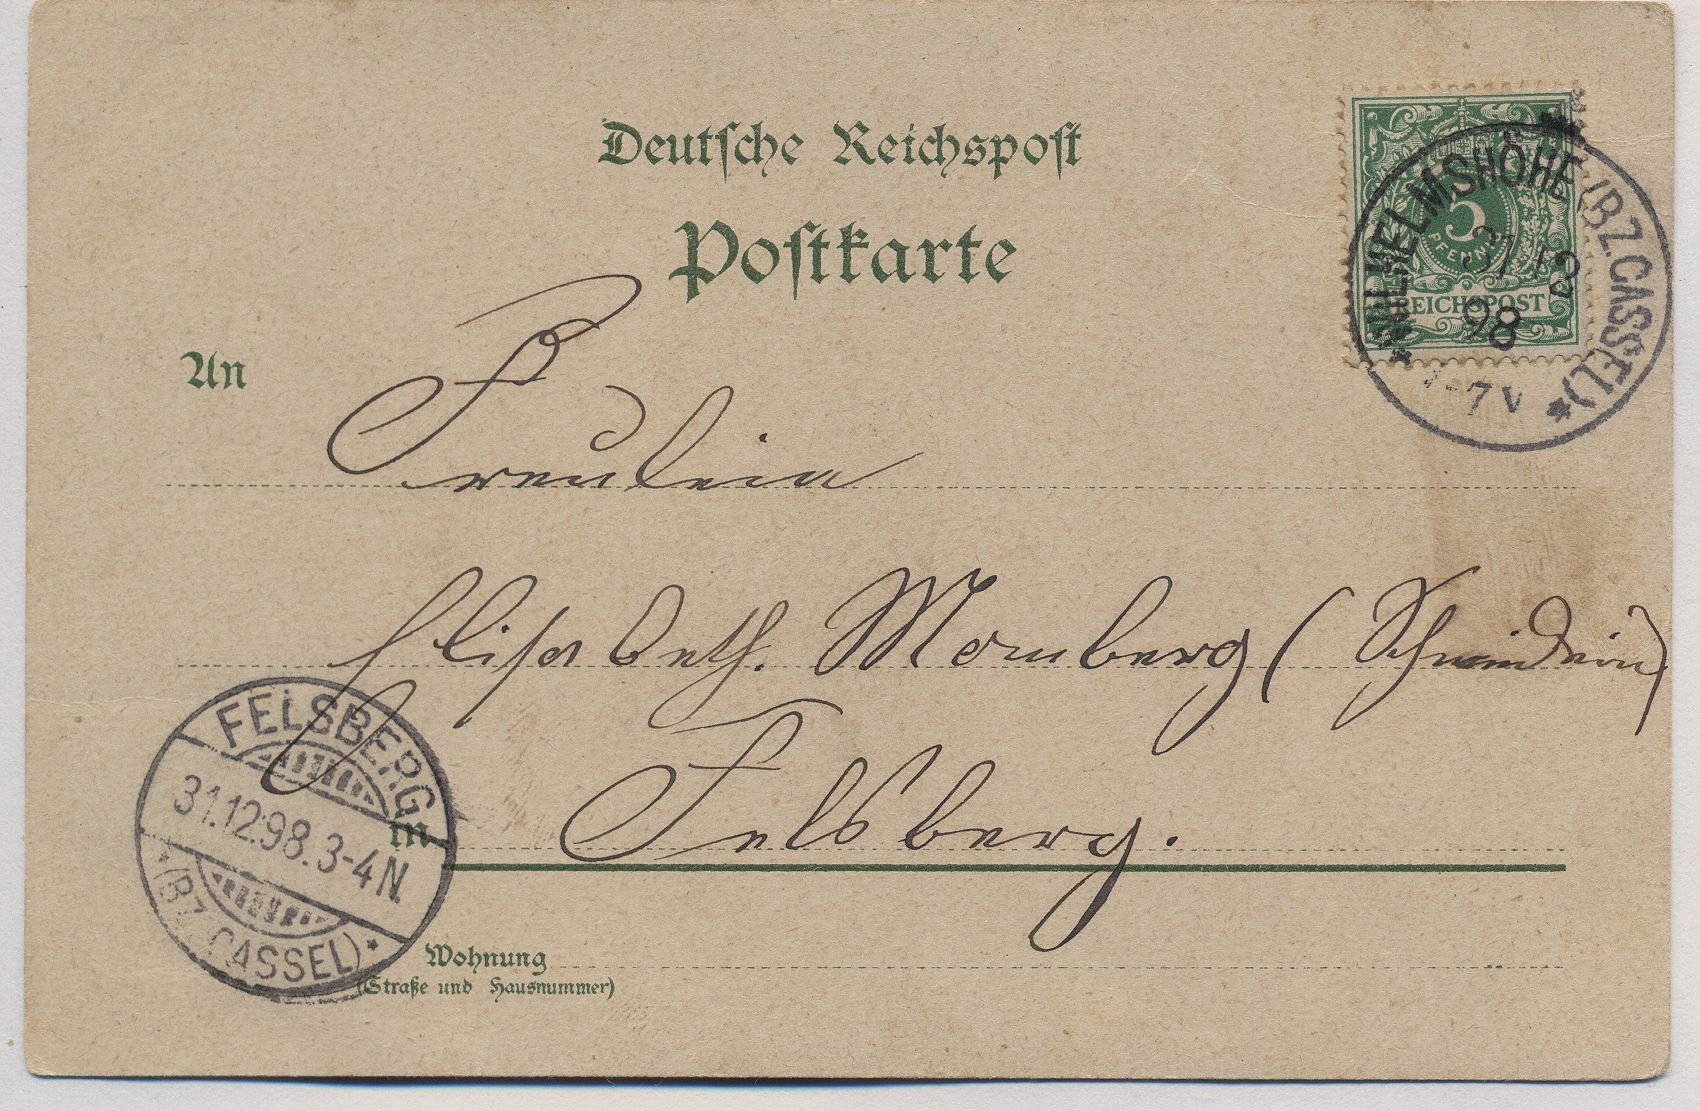 Deutsche Reichspost
Postkarte
5
PFENNIG
REICHSPOST
WILHELMSHÖHE (BZ.CASSEL)
31 12
98
7 V
An
Freulein
Elisabeth. Momberg (Schneiderin)
FELSBERG
31.12.98.3-4N.
(BZ. CASSEL)
in Felsberg.
Wohnung
(Straße und Hausnummer)